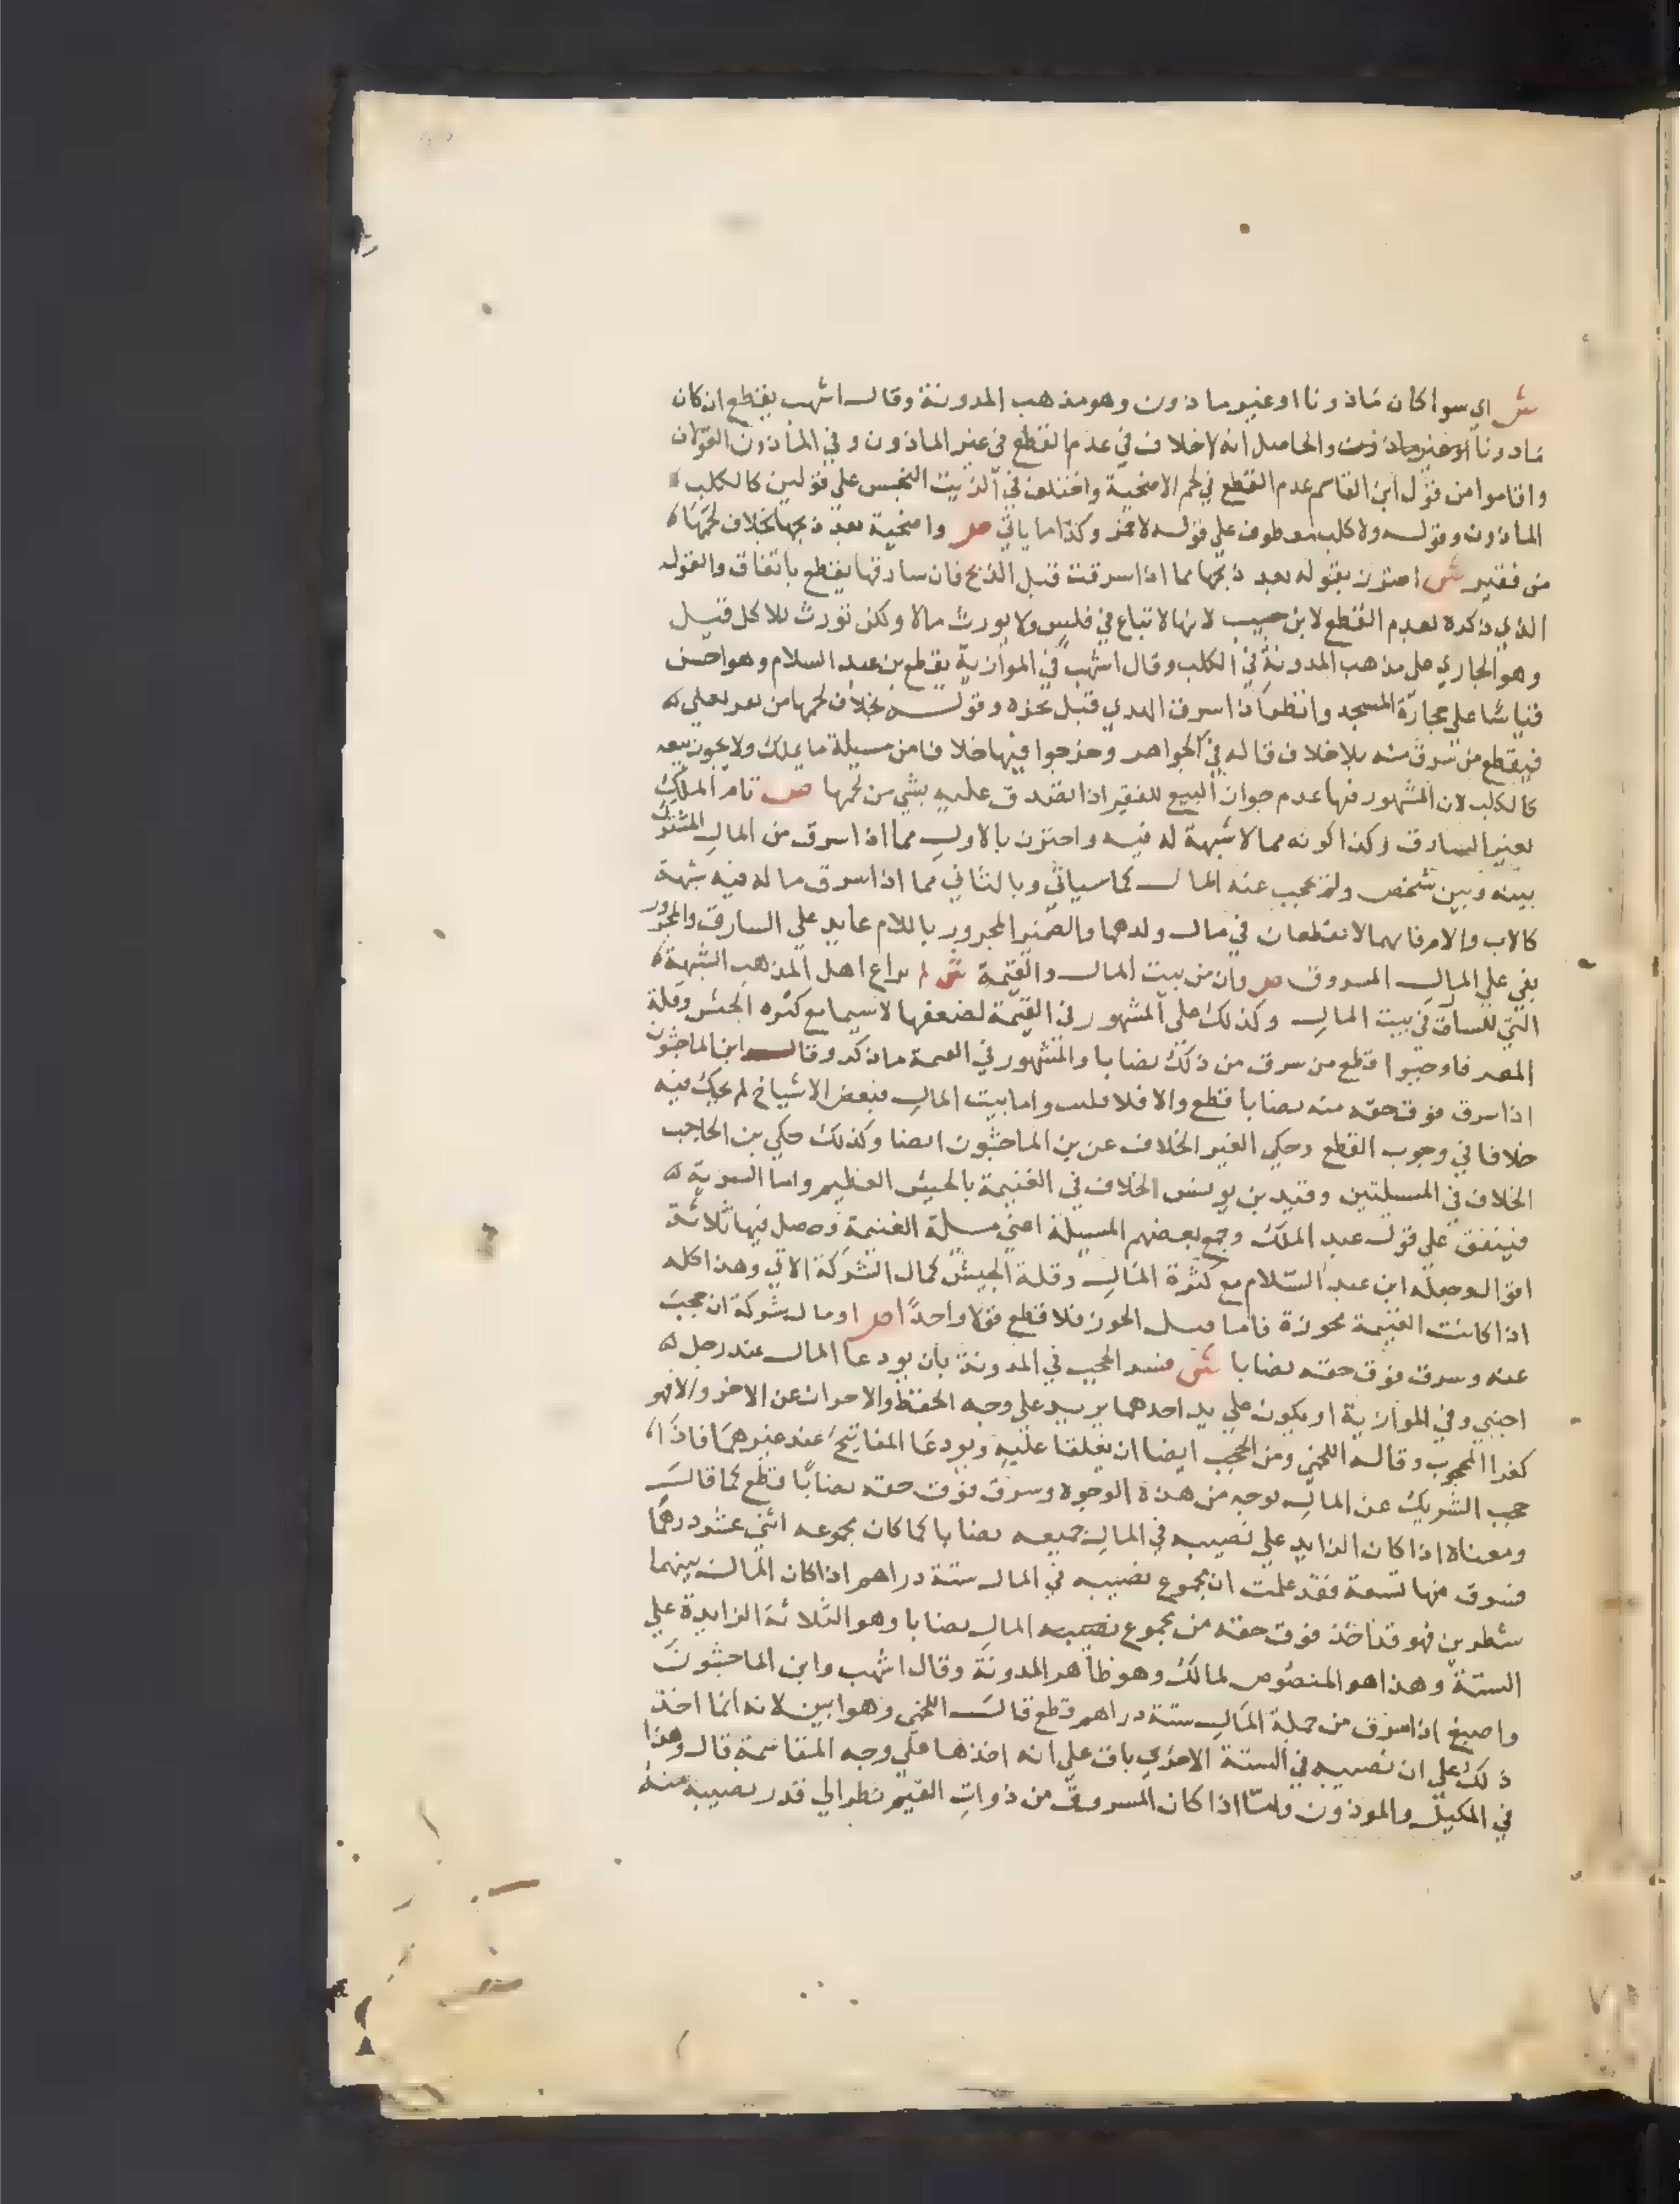 ش اي سوا كان ماذونا او غير ماذون وهو مذهب المدونة وقال اشهب يقطع ان كان
ماذونا لا غير ماذون والحاصل انه لا خلاف في عدم القطع في غير الماذون وفي الماذون القولان
واقاموا من قول ابن القاسم عدم القطع في لحم الاضحية واختلف في الزيت النجس علي قولين كالكلب
الماذون وقوله ولا كلب معطوف علي قوله لا خمر وكذا ما ياتي ص واضحية بعد ذبحها بخلاف لحمها
من فقير ش احترز بقوله بعد ذبحها مما اذا سرقت قبل الذبح فان سارقها يقطع باتفاق والقول
الذي ذكره بعدم القطع لابن حبيب لانها لا تباع في فلس ولا يورث مالا ولكن تورث للاكل قيل
وهو الجاري علي مذهب المدونة في الكلب وقال اشهب في الموازية يقطع بن عبد السلام وهو احسن
قياسا علي حجارة المسجد وانظر اذا سرق الهدي قبل نحره وقوله بخلاف لحمها من فقير يعني
فيقطع من سرق منه بلا خلاف قاله في الجواهر وخرجوا فيها خلافا من مسيلة ما يملك ولا يجوز بيعه
كالكلب لان المشهور فيها عدم جواز البيع للفقير اذا تصدق عليه بشي من لحمها ص تام الملك
لغير السارق وكذا كونه مما لا شبهة له فيه واحترز بالاول مما اذا سرق من المال المشترك
بينه وبين شخص ولم يحجب عنه المال كما سياتي وبالثاني مما اذا سرق ما له فيه شبهة
كالاب والام فانهما لا يقطعان في مال ولدهما والضمير المجرور باللام عايد علي السارق والمجرور
بفي علي المال المسروق ص وان من بيت المال والغنيمة ش لم يراع اهل المذهب الشبهة
التي للسارق في بيت المال وكذلك علي المشهور في الغنيمة لضعفها لا سيما مع كثرة الجيش وقلة
المغنم فاوجبوا قطع من سرق من ذلك نصابا والمشهور في الغنيمة ما ذكر وقال ابن الماجشون
اذا سرق فوق حقه منه نصابا قطع والا فلا قلت واما بيت المال فبعض الاشياخ لم يحك فيه
خلافا في وجوب القطع وحكي الغير الخلاف عن بن الماجشون ايضا وكذلك حكي بن الحاجب
الخلاف في المسيلتين وقيد بن يونس الخلاف في الغنيمة بالجيش العظيم واما السرية
فيتفق علي قول عبد الملك وجمع بعضهم المسيلة اعني مسيلة الغنيمة وحصل فيها ثلاثة
اقوال وجعله ابن عبد السلام مع كثرة المال وقلة الجيش كمال الشركة الاتي وهذا كله
اذا كانت الغنيمة محوزة فاما قبل الحوز فلا قطع قولا واحدا ص او مال شركة ان حجب
عنه وسرق فوق حقه نصابا ش فسر الحجب في المدونة بان يودعا المال عند رجل
اجنبي وفي الموازية او يكون علي يد احدهما بيد علي وجه الحفظ والاحراز عن الاخر والا فهو
كغير المحجوب وقاله اللخمي ومن الحجب ايضا ان يغلقا عليه ويودعا المفاتيح عند غيرهما فاذا
حجب الشريك عن المال بوجه من هذه الوجوه وسرق فوق حقه نصابا قطع كما قال
ومعناه اذا كان الزايد علي نصيبه في المال جميعه نصابا كما كان مجموعه اثني عشر درهما
فسرق منها تسعة فقد علمت ان مجموع نصيبه في المال ستة دراهم اذا كان المال بينهما
شطرين فهو قد اخذ فوق حقه من مجموع نصيبه المال نصابا وهو الثلاثة الزايدة علي
الستة وهذا هو المنصوص لمالك وهو ظاهر المدونة وقال اشهب وابن الماجشون
واصبغ اذا سرق من جملة المال ستة دراهم قطع قال اللخمي وهو ابين لانه انما اخذ
ذلك علي ان نصيبه في الستة الاخري باق علي انه اخذها علي وجه المقاسمة قال وهذا
في المكيل والموزون واما اذا كان المسروق من ذوات القيم نظر الي قدر نصيبه منه